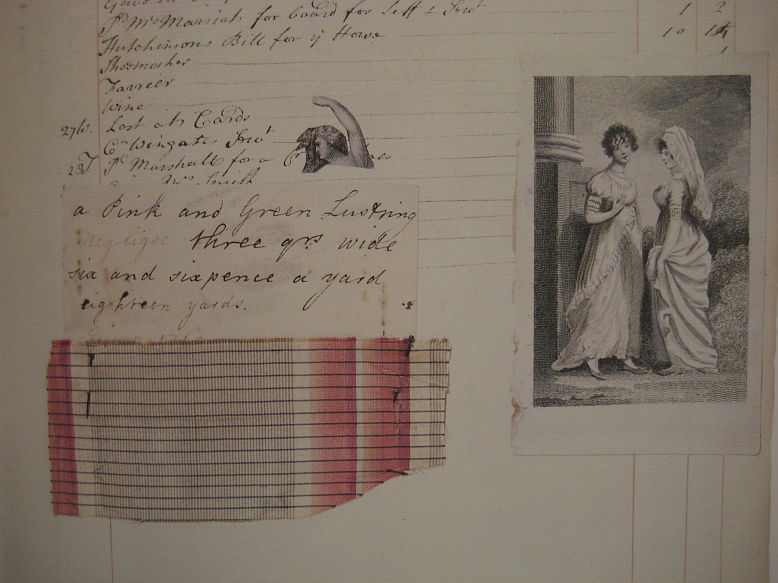 Pd Mrs Marriah for board for Self & Servt 1 2
Hutchinsons Bill for ye Horse 10
Shoemaker 1
Farrier
Wine
27 W. Lost at Cards
Con Wingates Servt
28 T. Pd Marshall for a
Mrs Smith
a Pink and Green Lustring
Negligee three qrs wide
six and sixpence a yard
eighteen yards.